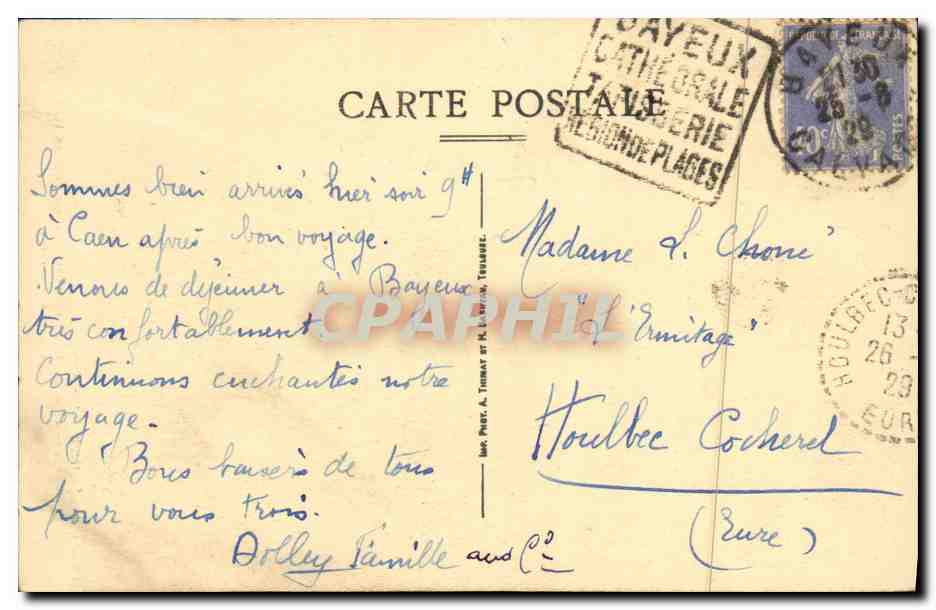 CARTE POSTALE
BAYEUX
CATHÉDRALE
TAPISSERIE
RÉGION DE PLAGES
BAYEUX
30
25 - 8
29
CALVA
20c POSTES
Sommes bien arrivés hier soir 9H
à Caen après bon voyage.
Venons de déjeuner à Bayeux
très confortablement
Continuons enchantés notre
voyage.
Bons baisers de tous
pour vous trois.
Dolley famille and Co
IMP. PHOT. A. THIRIAT ET H. BASUYAU, TOULOUSE.
CPAPHIL
Madame L. Choné
"L'Ermitage"
Houlbec Cocherel
(Eure)
HOULBEC-C
13
26 -
29
EUR